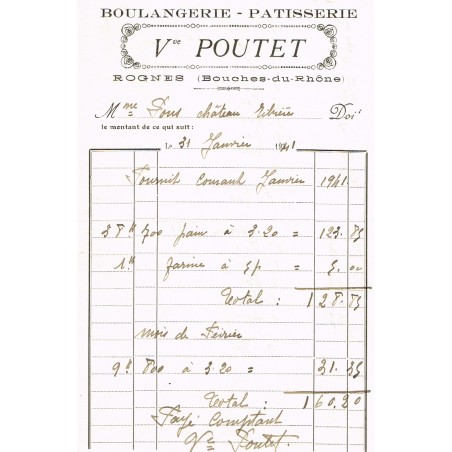 BOULANGERIE - PATISSERIE
Vve POUTET
ROGNES (Bouches-du-Rhône)
Mme Pons château Ribière Doit
le montant de ce qui suit :
le 31 Janvier 1941
Fournit courant Janvier 1941.
38 k 700 pain à 3.20 = 123.85
1 k farine à 5 f = 5.00
Total : 128.85
mois de Février
9 k 800 à 3.20 = 31.35
Total : 160.20
Payé Comptant
Vve Poutet.